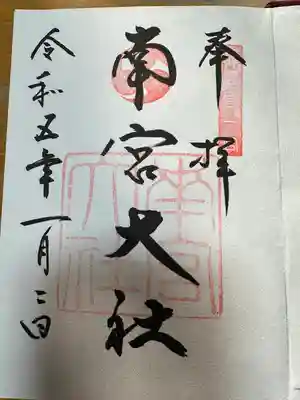 奉拝
南宮大社
令和五年一月二日
南宮大社